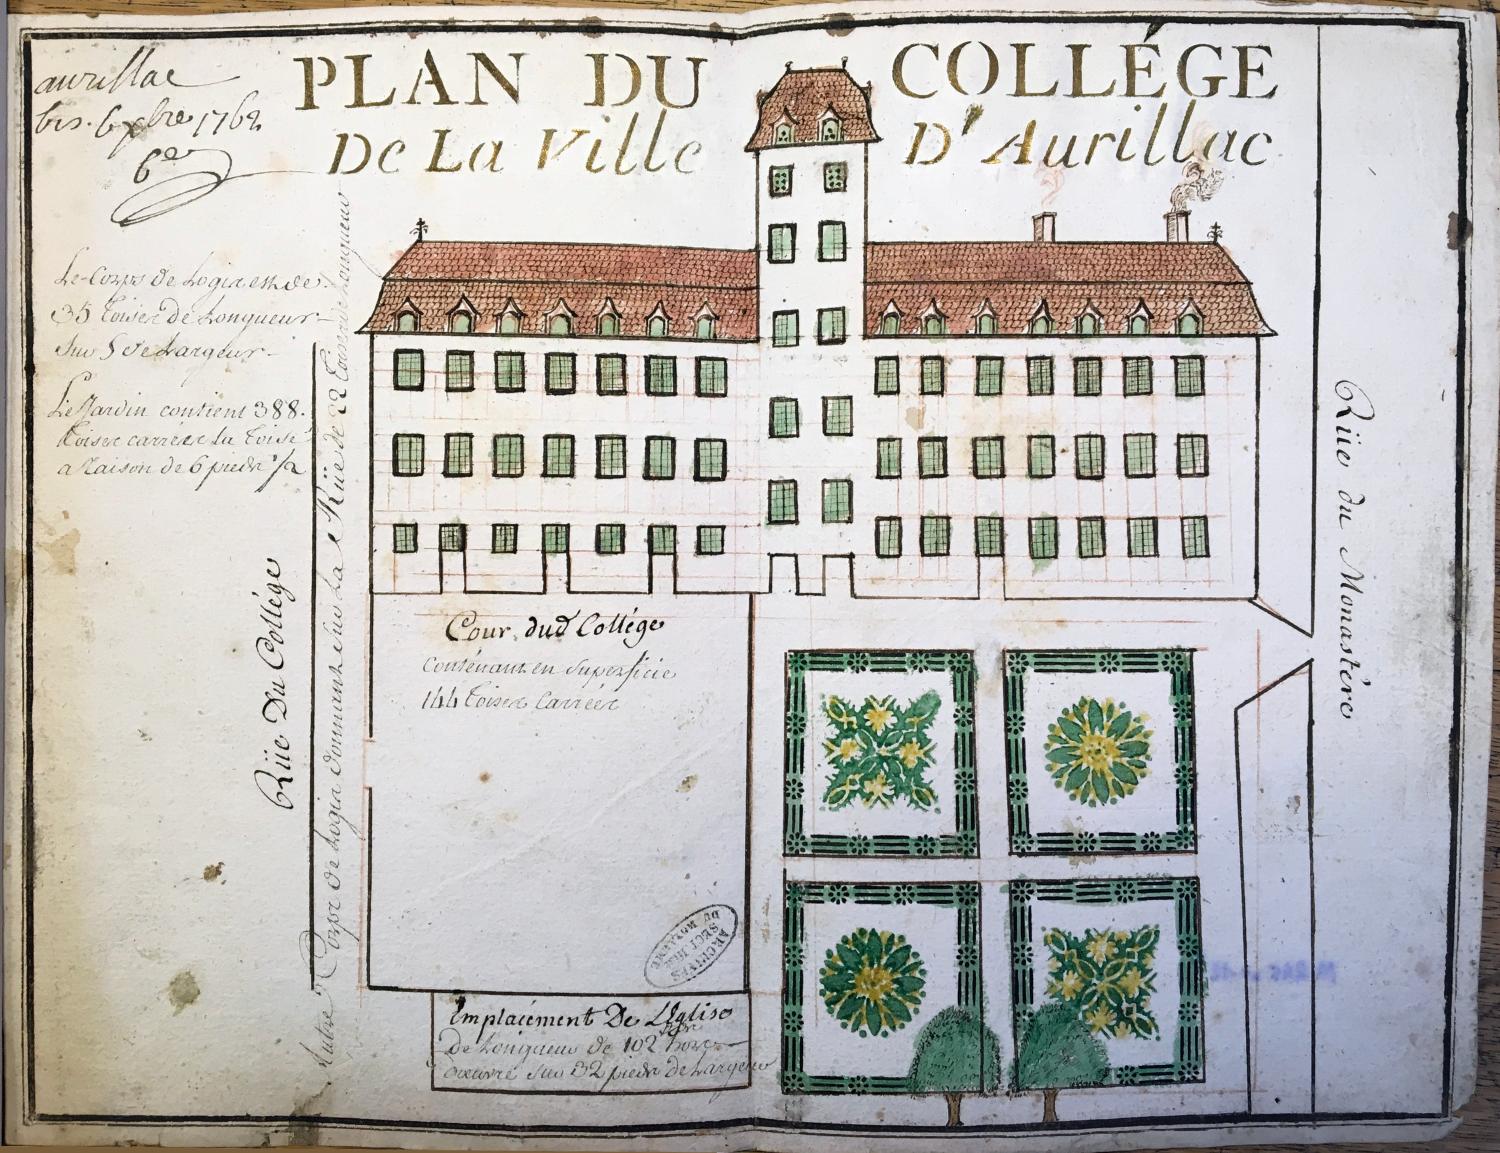 PLAN DU COLLÉGE
De La Ville D'Aurillac
aurillac
bis. 6 xbre 1762
6er
Le Corps de Logis est de
35 toises de Longueur
sur 5 de Largeur
Le Jardin contient 388.
toises carrées la toise
a Raison de 6 pieds 1/2
Rüe Du Collége
Autre Corps de Logis donnant sur La e Rüe de 22 toises de Longueur
Cour dud Collége
contenant en superficie
144 toises Carrées
ARCHIVES
SECT HIST
DU ROYAUME
Emplacément De L'Eglise
De Longueur de 102 pds hors
oeuvre sur 32 pieds de Largeur
Rüe du Monastère